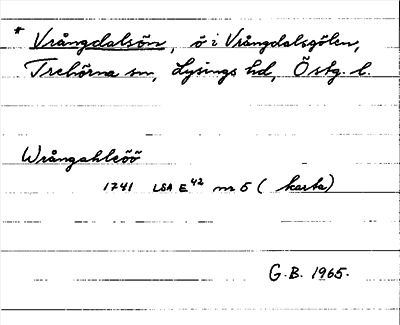 * Vrångdalsön, ö i Vrångdalsgölen,
Trehörna sn, Lysings hd, Östg. l.
Wrångahleöö
1741 LSA E42 nr 5 (karta)
G.B. 1965.